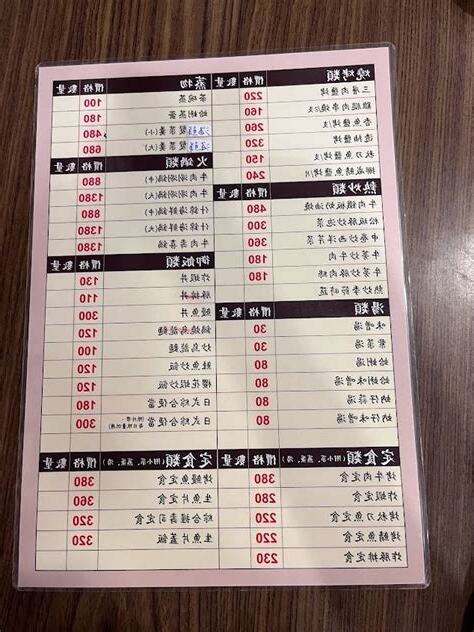 燒烤類 價格 數量
三層肉鹽烤 220
雞腿肉串燒/支 160
香魚鹽烤/支 260
透抽鹽烤 320
秋刀魚鹽烤/支 150
挪威鯖魚鹽烤/片 240
熱炒類 價格 數量
牛肉鐵板奶油燒 480
松板豚炒泡菜 300
中卷西洋芹菜 360
牛蒡炒牛肉 180
牛蒡炒豚肉絲 180
熱炒季節時蔬
湯類 價格 數量
味噌湯 30
紫菜湯 30
蛤蜊湯 80
蛤蜊味噌湯 80
蚵仔湯 80
蚵仔味噌湯 80
定食類(附小菜、蒸蛋、湯) 價格
烤牛肉定食 380
炸蝦定食 280
烤秋刀魚定食 220
烤鯖魚定食 220
炸豚排定食 230
蒸物 價格 數量
茶碗蒸 100
蛤蜊蒸蛋 180
(小) 480
(大) 680
火鍋類 價格 數量
牛肉涮涮鍋(中) 880
牛肉涮涮鍋(大) 1380
什錦海鮮鍋(中) 880
什錦海鮮鍋(大) 1380
牛肉壽喜鍋 1380
御飯類 價格 數量
炸蝦丼 130
豚排丼 110
鰻魚丼 300
鍋燒烏龍麵 120
炒烏龍麵 100
鮭魚炒飯 120
櫻花蝦炒飯 120
日式綜合便當 180
日式綜合便當 300
定食類(附小菜、蒸蛋、湯) 價格 數量
烤鰻魚定食 380
生魚片定食 360
綜合握壽司定食 320
生魚片蓋飯 320